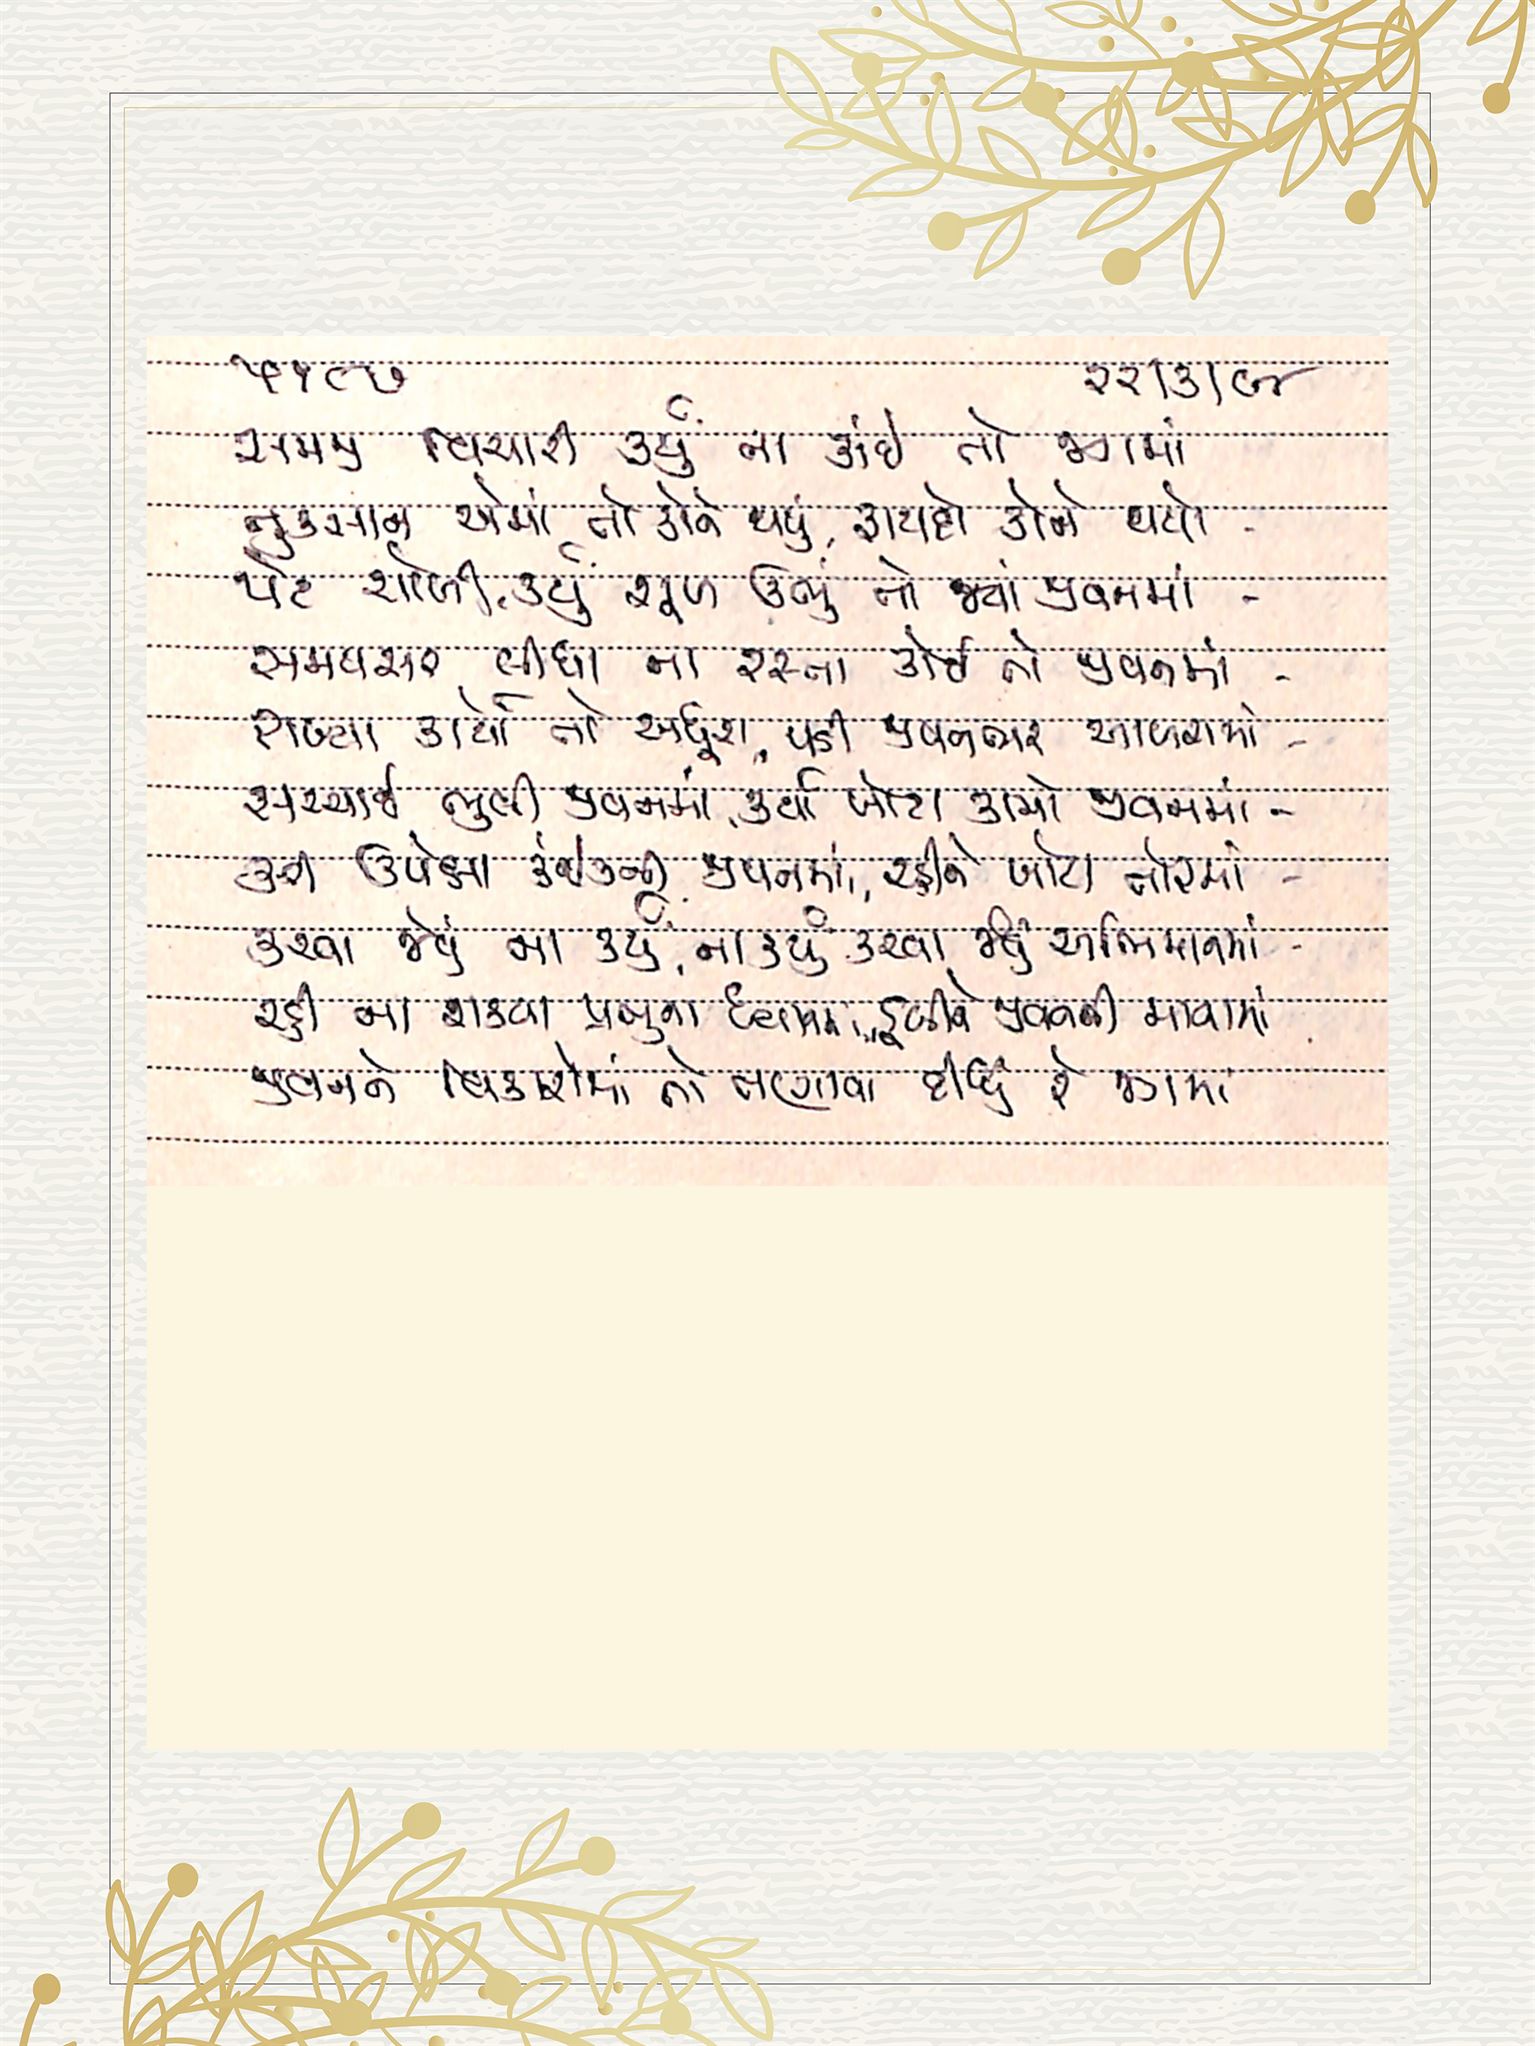 ૫૧૮૭ ૨૨/૩/૯૪
સમજી વિચારી કર્યું ના કાંઈ તો જગમાં
નુકસાન એમાં તો કોને થયું, ફાયદો કોને થયો -
પેટ ચોળી, કર્યું શૂળ ઊભું તો જ્યાં જીવનમાં -
સમયસર લીધા ના રસ્તા કોઈ તો જીવનમાં -
રાખ્યા કાર્યો તો અધૂરા, પડી જીવનભર આળસમાં -
સચ્ચાઈ ભુલી જીવનમાં, કર્યા ખોટા કામો જીવનમાં -
કરી ઉપેક્ષા કંઈકની જીવનમાં, રહીને ખોટા તોરમાં -
કરવા જેવું ના કર્યું, ના કર્યું કરવા જેવું અભિમાનમાં -
રહી ના શક્યા પ્રભુના ધ્યાનમાં, ડૂબીને જીવનની માયામાં
જીવનને વિકારોમાં તો તણાવા દીધું રે જગમાં